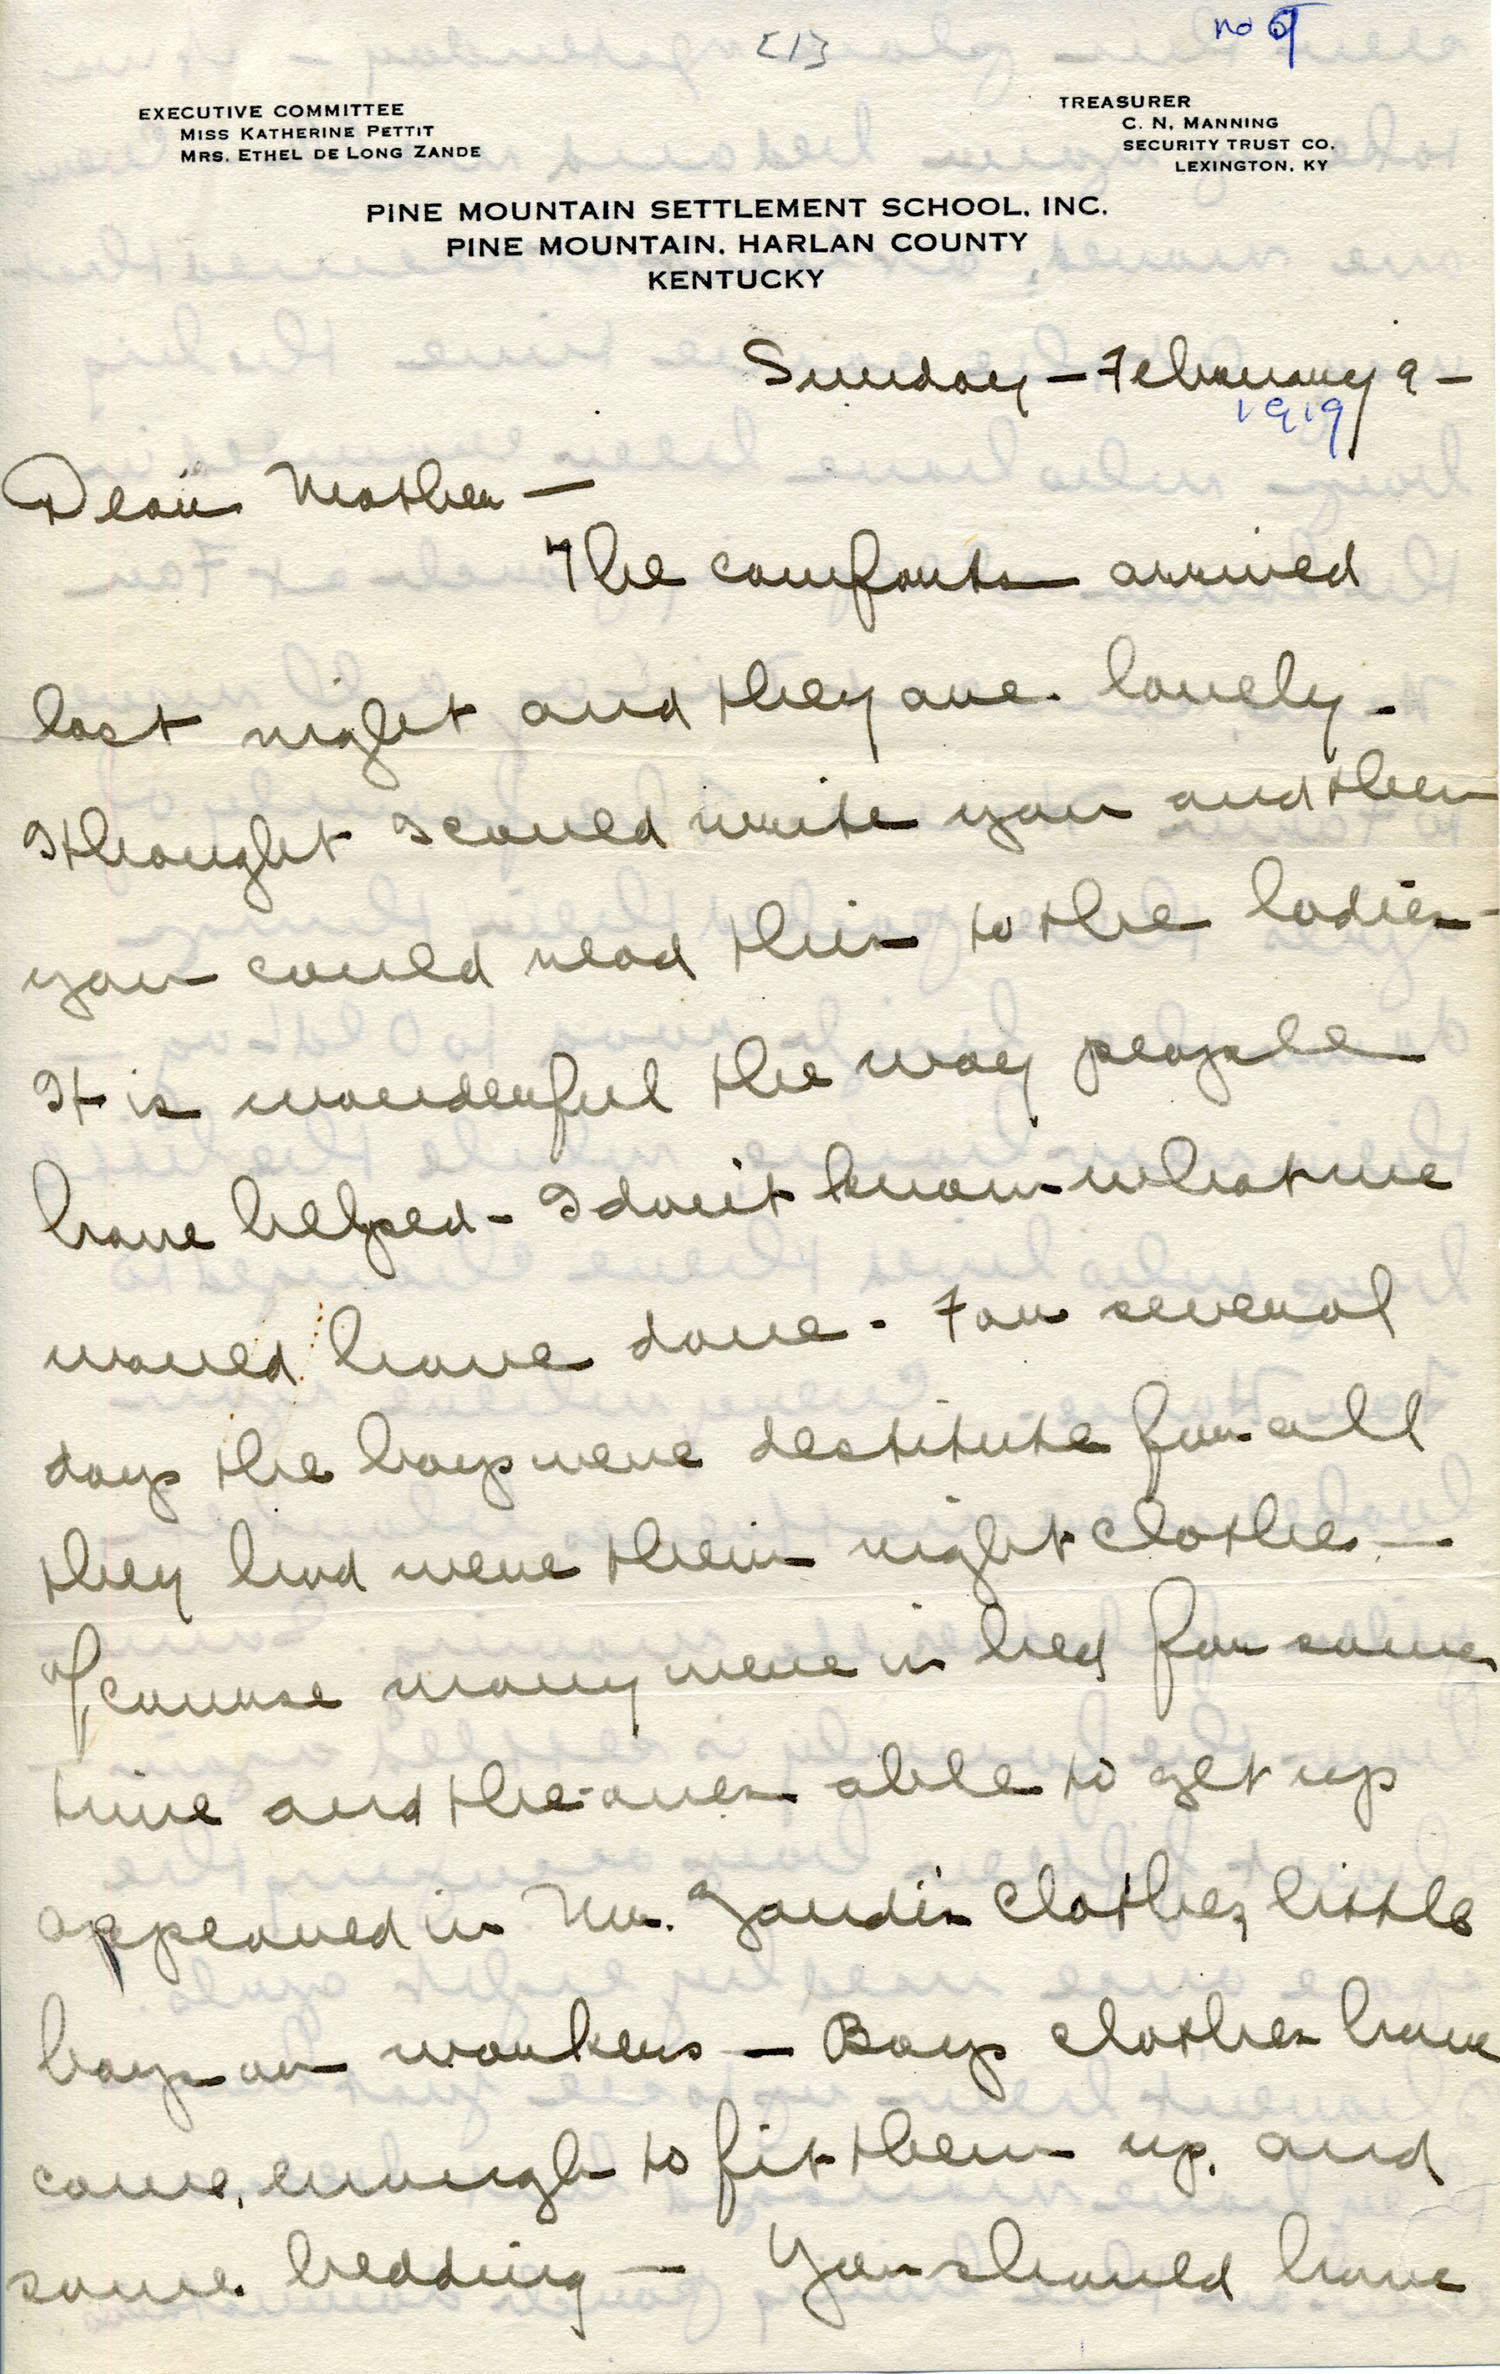 no 9
[1]
EXECUTIVE COMMITTEE
MISS KATHERINE PETTIT
MRS. ETHEL DE LONG ZANDE
TREASURER
C. N. MANNING
SECURITY TRUST CO.
LEXINGTON, KY
PINE MOUNTAIN SETTLEMENT SCHOOL, INC.
PINE MOUNTAIN, HARLAN COUNTY
KENTUCKY
Sunday - February 9 -
1919
Dear Mother -
The comforts arrived
last night and they are lovely -
I thought I could write you and then
you could read this to the ladies -
It is wonderful the way people
have helped - I don't know what we
would have done - For several
days the boys were destitute for all
they had were their night clothes -
Of course many were in bed for some
time and the ones able to get up
appeared in Mr. Zande's clothes, little
boys or workers - Boys clothes have
come, enough to fit them up, and
some bedding - You should have